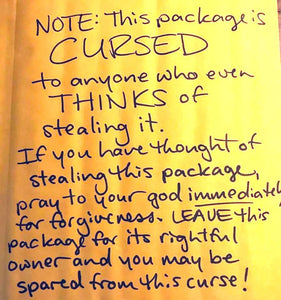 NOTE: This package is
CURSED
to anyone who even
THINKS of
stealing it.
If you have thought of
stealing this package,
pray to your god immediately
for forgiveness. LEAVE this
package for its rightful
owner and you may be
spared from this curse!